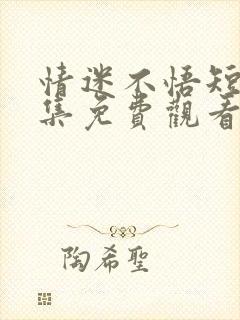 情迷不悟短
集免費觀看
陶希聖